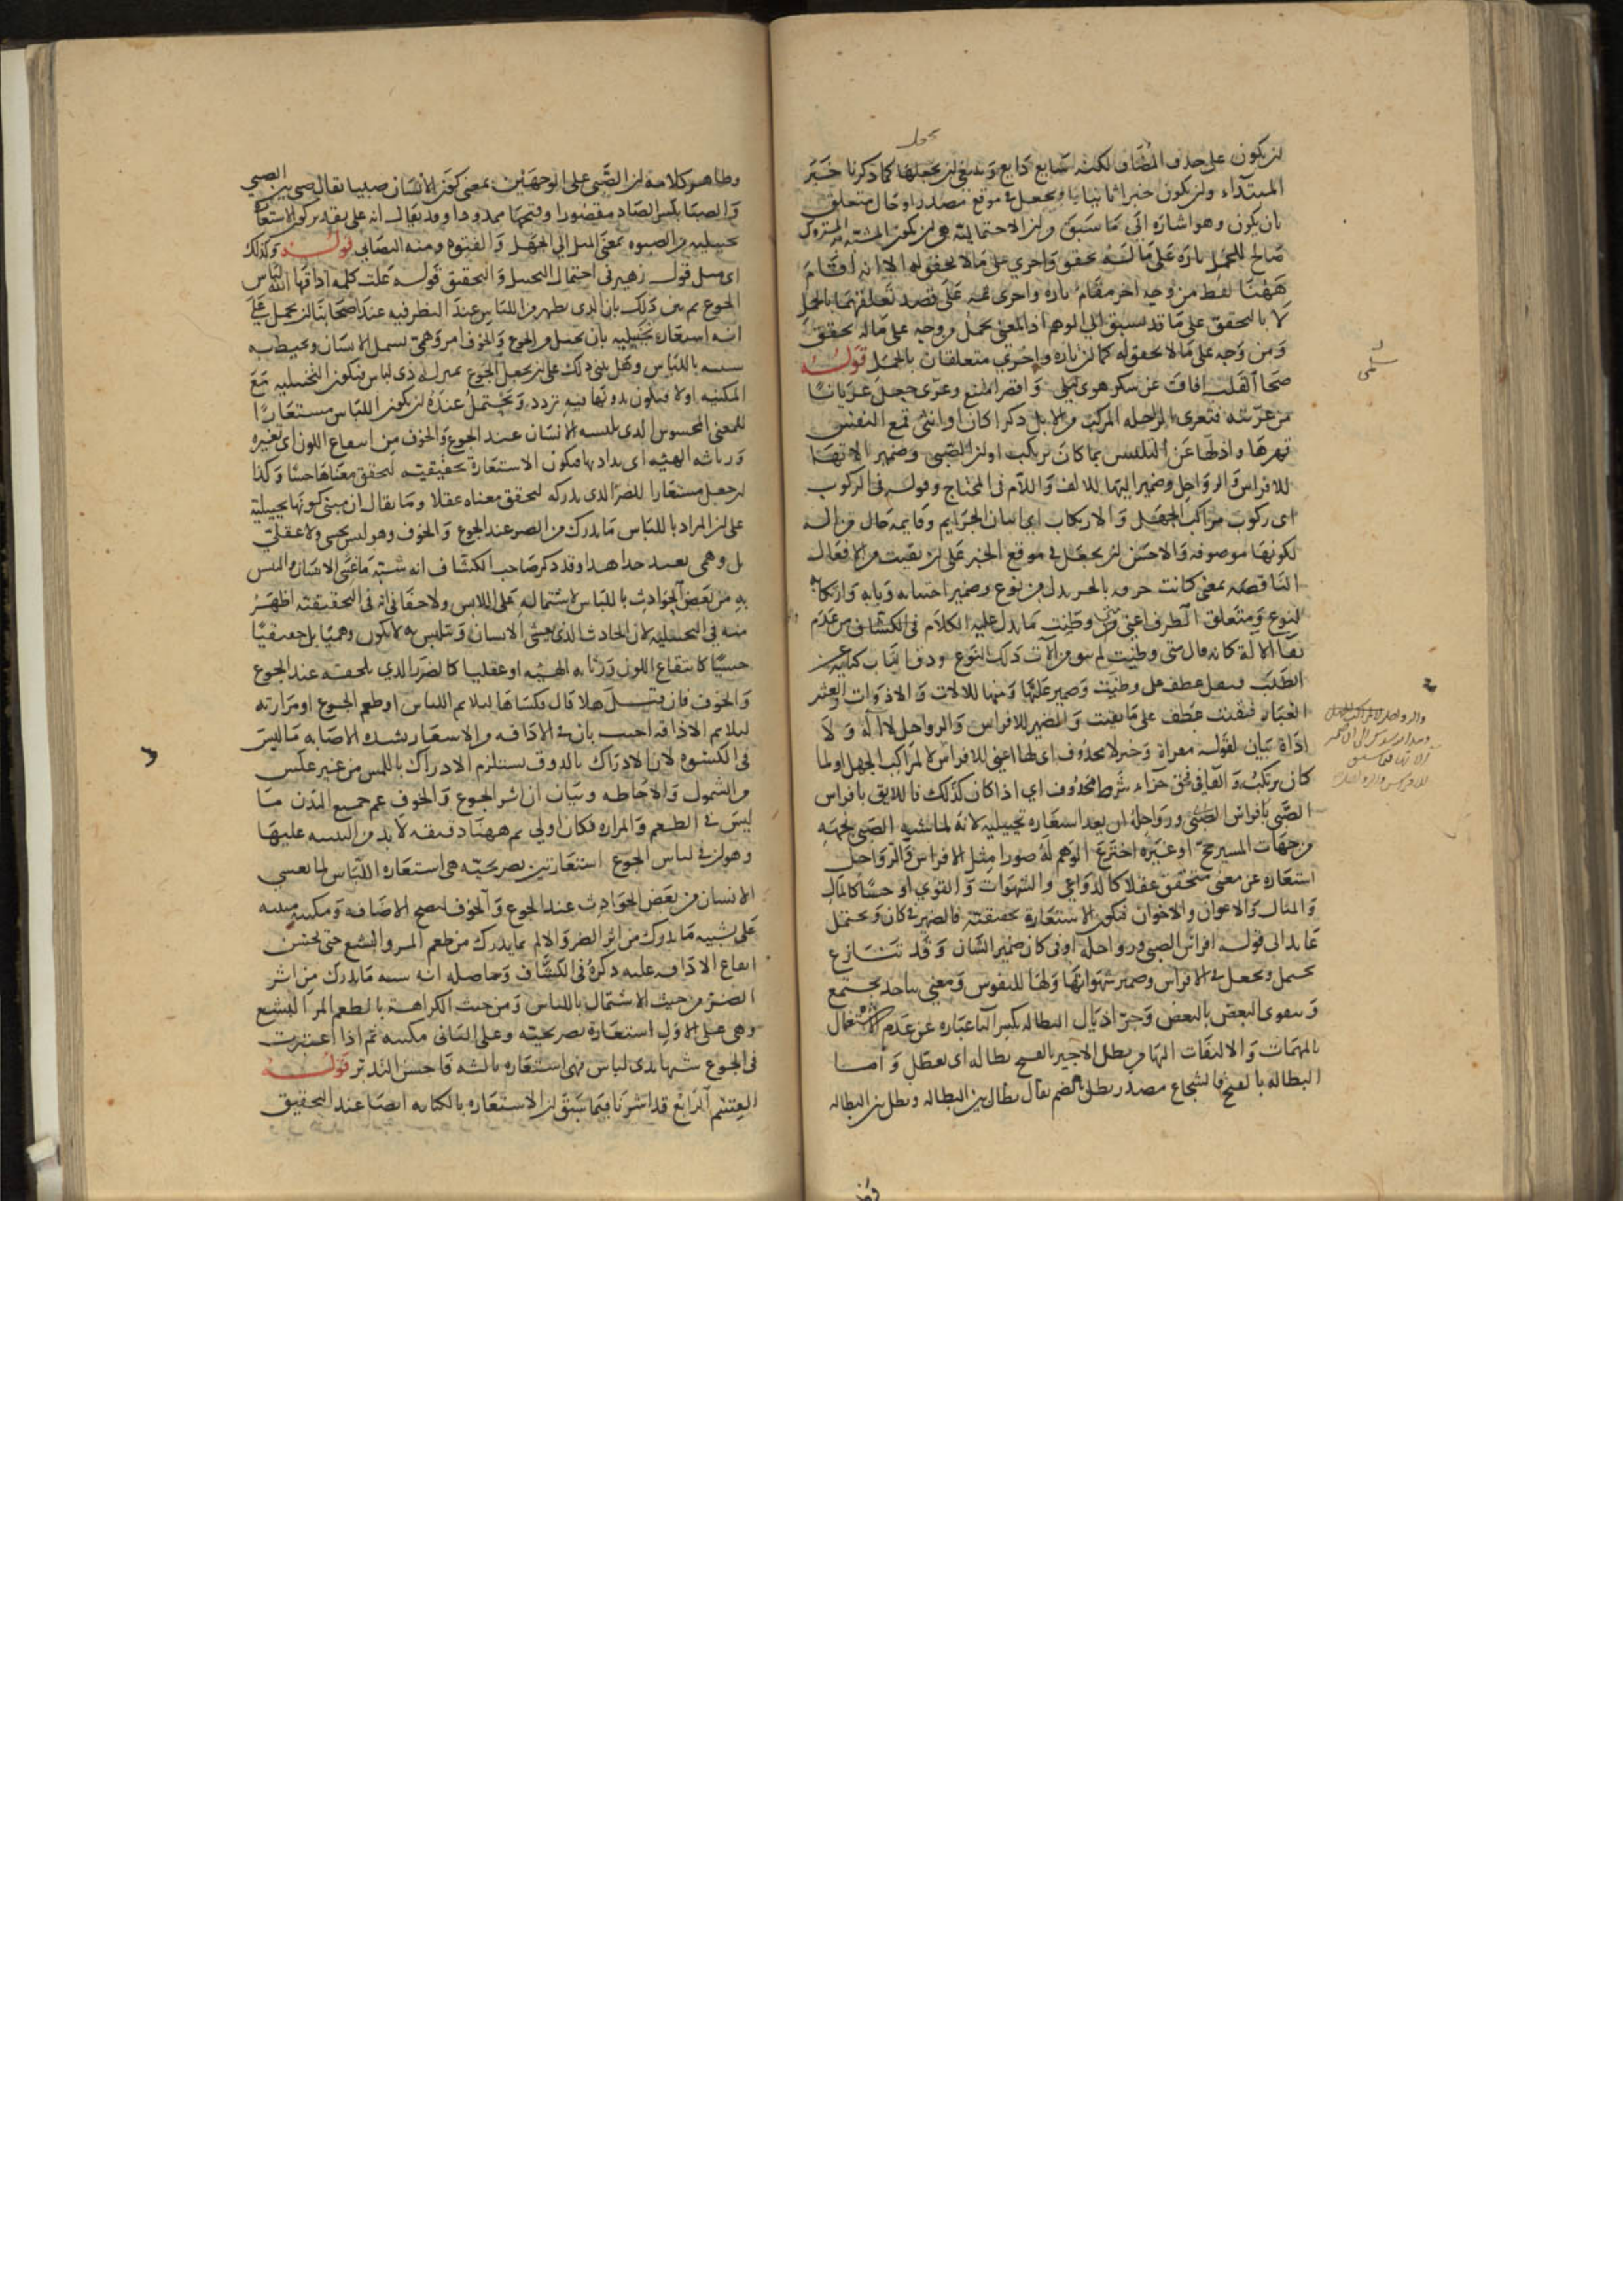 لن يكون على حذف المضاف لكنه شايع ذايع وينبغي لن يجعلها كما ذكرنا خبر
المبتداء ولن يكون خبرا ثانيا ويجعل في موقع مصدر او حال متعلق
بان يكون وهو اشارة الى ما سبق ولن الاحتمالية هي لن يكون المشبه المتروك
صالح للحمل تارة على ما له تحقق واخرى على ما لا تحقق له الا انه اقام
ههنا لفظ من وجه اخر مقام تارة واخرى على قصد تعلقهما بالحمل
لا بالتحقق على ما قد يسبق الى الوهم اذ المعنى يحمل من وجه على ما له تحقق
ومن وجه على ما لا تحقق له كما لن تارة واخرى متعلقان بالحمل قوله
صحا القلب افاق عن سكر هوى سلمى واقصر امتنع وعرى جعل عريانا
من عريته فتعرى الراحلة المركب من الابل ذكرا كان او انثى قمع النفس
قهرها واذلها عن التلبس بما كان يرتكب اولن الصبى وضمير الاتها
للافراس والرواحل وضمير اليها للالف واللام في المحتاج وقوله في الركوب
اى ركوب مراكب الجهل والارتكاب اى اتيان الجرايم وقايمة حال من الة
لكونها موصوفة والاحسن لن يجعل في موقع الخبر على لن بقيت من الافعال
الناقصة بمعنى كانت حرفة بالجر بدل من نوع وضمير اجتنابه وبابه وارتكابه
لنوع ومتعلق الظرف اعني من وطنت ما يدل عليه الكلام في الكشاف من عدم
بقا الالة كانه قال متى وطنت لم يبق من الات ذلك النوع
الطلب وتعطل عطف على وطنت وضمير عليها ومنها للالات والادوات والعثير
الغبار فبقيت عطف على ما بقيت والضمير للافراس والرواحل لا الة ولا
اداة بيان لقوله معراة وخبر لا محذوف اى لها اعني للافراس لا لمراكب الجهل او لما
كان يرتكب والفا في فحق جزاء شرط محذوف اى اذا كان كذلك فاللايق بافراس
الصبى بافراس الصبى ورواحله ان يعد استعارة تخييلية لانه لما شبه الصبى بجهة
من جهات المسير كحج او غيره اخترع الوهم له صورا مثل الافراس والرواحل
استعارة عن معنى متحقق عقلا كالدواعي والشهوات والقوى او حسا كالمال
والمنال والاعوان والاخوان فتكون الاستعارة تحقيقية فالضمير في كان ويحتمل
عايد الى قوله افراس الصبى ورواحله او في كان ضمير الشان وقد تنازع
يحمل ويجعل في الافراس وضمير شهواتها ولها للنفوس ومعنى يتاخذ يجتمع
ويتقوى البعض بالبعض وجر اذيال البطالة بكسر البا عبارة عن عدم الاشتغال
بالمهمات والالتفات اليها من بطل الاجير بالفتح بطالة اى تعطل واما
البطالة بالفتح فالشجاع مصدر بطل بالضم يقال بطال بين البطالة وبطل بين البطالة
سلمى
وظاهر كلامه لن الصبى على الوجهين بمعنى كون الانسان صبيا يقال صبي بين الصبي
والصبا بكسر الصاد مقصورا وفتحها ممدودا وقد يقال انه على تقدير كون الاستعارة
تخييلية من الصبوة بمعنى الميل الى الجهل والفتوة ومنه التصابي قوله وكذلك
اى مثل قول زهير في احتمال التخييل والتحقيق قوله علت كلمه اذاقها الله لباس
الجوع ثم بين ذلك بان الذى يظهر من اللباس عند النظر فيه عند اصحابنا لن يحمل على
انه استعارة تخييلية بان يتخيل من الجوع والخوف امر وهمي يشمل الانسان ويحيط به
شبيه باللباس وهل يبنى ذلك على لن يجعل الجوع بمنزلة ذى لباس فيكون التخييلية مع
المكنية او لا فيكون بدونها فيه تردد ويحتمل عنده لن يكون اللباس مستعارا
للمعنى المحسوس الذى يلبسه الانسان عند الجوع والخوف من امتقاع اللون اى تغيره
ورثاثه الهيئه اى بذاذتها فيكون الاستعارة تحقيقية لتحقق معناها حسا وكذا
لن جعل مستعارا للضر الذى يدركه لتحقق معناه عقلا وما يقال ان مبنى كونها تخييلية
على لن المراد باللباس ما يدرك من الضر عند الجوع والخوف وهو ليس بحسي ولا عقلي
بل وهمي بعيد جدا هذا وقد ذكر صاحب الكشاف انه شبه ما غشى الانسان والتبس
به من بعض الحوادث باللباس لاشتماله على اللابس ولا خفا في انه في التحقيقية اظهر
منه في التخييلية لان الحادث الذى يغشى الانسان ويتلبس به لا يكون وهميا بل حقيقيا
حسيا كامتقاع اللون ورثاثه الهيئه او عقليا كالضر الذي يلحقه عند الجوع
والخوف فان قيل هلا قال فكساها ليلايم اللباس او طعم الجوع او مرارته
ليلايم الاذاقه اجيب بان في الاذاقه من الاشعار بشدة الاصابة ما ليس
في الكسوة لان الادراك بالذوق يستلزم الادراك باللمس من غير عكس
من الشمول والاحاطه وبيان ان اثر الجوع والخوف عم جميع البدن ما
ليس في الطعم والمرارة فكان اولى ثم ههنا دقيقه لا بد من التنبيه عليها
وهو لن في لباس الجوع استعارتين تصريحية هي استعارة اللباس لما يغشى
الانسان من بعض الحوادث عند الجوع والخوف ليصح الاضافة ومكنية مبنية
على تشبيه ما يدرك من اثر الضر والالم بما يدرك من طعم المر والبشع حتى يحسن
ايقاع الاذاقه عليه ذكره في الكشاف وحاصله انه شبه ما يدرك من اثر
الضر من حيث الاشتمال باللباس ومن حيث الكراهة بالطعم المر البشع
وهي على الاول استعارة تصريحية وعلى الثاني مكنية ثم اذا اعتبرت
في الجوع شبها بذى لباس فهى استعارة ثالثة فاحسن التدبر قوله
القسم الرابع قد اشرنا فيما سبق لن الاستعارة بالكناية ايضا عند التحقيق